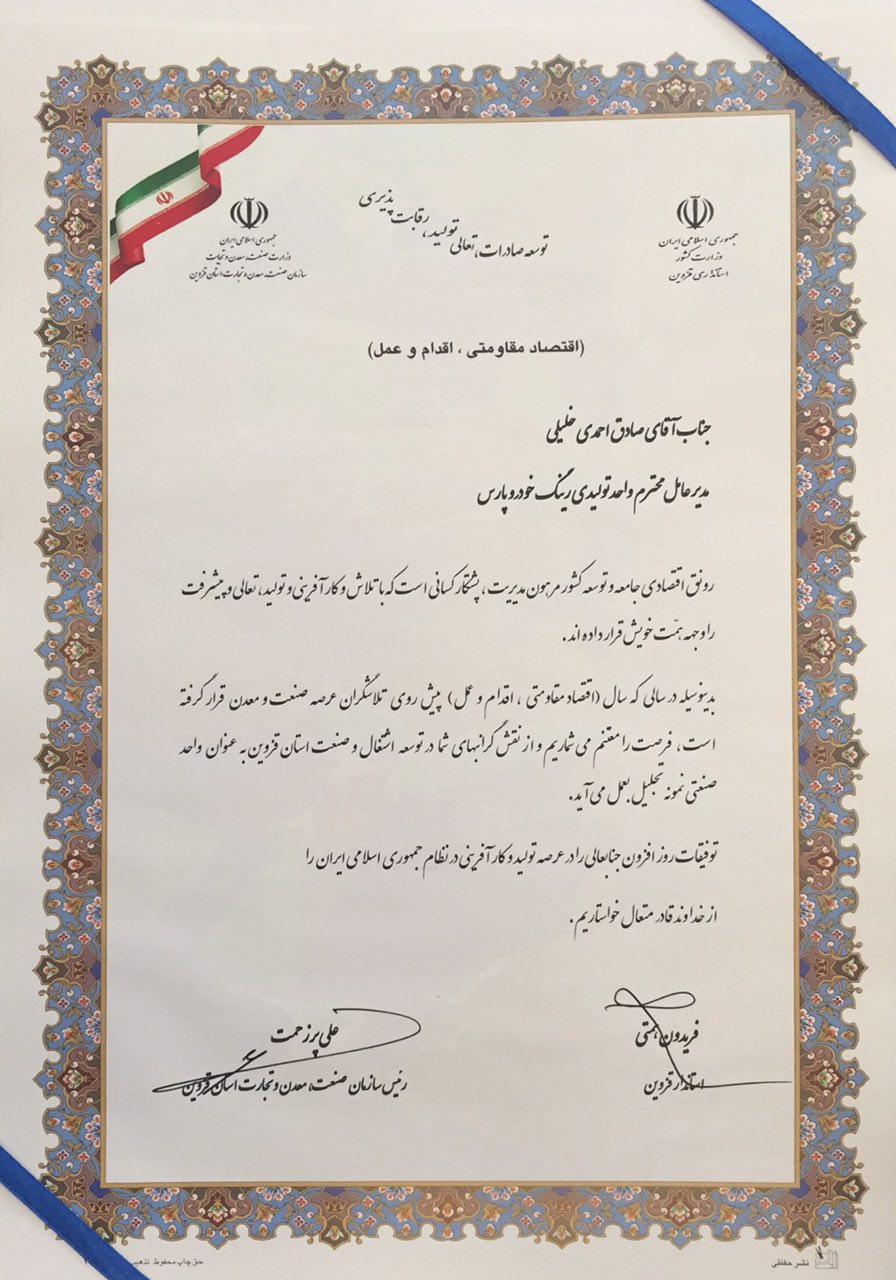 جمهوری اسلامی ایران
وزارت کشور
استانداری قزوین
توسعه صادرات، تعالی تولید، رقابت پذیری
جمهوری اسلامی ایران
وزارت صنعت، معدن و تجارت
سازمان صنعت، معدن و تجارت استان قزوین
(اقتصاد مقاومتی ، اقدام و عمل)
جناب آقای صادق احمدی خلیلی
مدیر عامل محترم واحد تولیدی رینگ خودرو پارس
رونق اقتصادی جامعه و توسعه کشور مرهون مدیریت ، پشتکار کسانی است که با تلاش و کارآفرینی و تولید، تعالی و پیشرفت
را وجهه همّت خویش قرار داده اند .
بدینوسیله در سالی که سال (اقتصاد مقاومتی ، اقدام و عمل) پیش روی تلاشگران عرصه صنعت و معدن قرار گرفته
است ، فرصت را مغتنم می شماریم و از نقش گرانبهای شما در توسعه اشتغال و صنعت استان قزوین به عنوان واحد
صنعتی نمونه تجلیل بعمل می آید.
توفیقات روز افزون جنابعالی را در عرصه تولید و کارآفرینی در نظام جمهوری اسلامی ایران را
از خداوند قادر متعال خواستاریم .
فریدون همتی
استاندار قزوین
علی پرزحمت
رئیس سازمان صنعت، معدن و تجارت استان قزوین
نشر حفظی
حق چاپ محفوظ. تذهیب